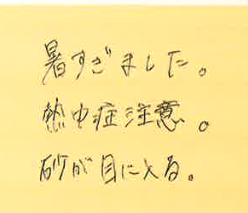 暑すぎました。
熱中症注意。
砂が目に入る。